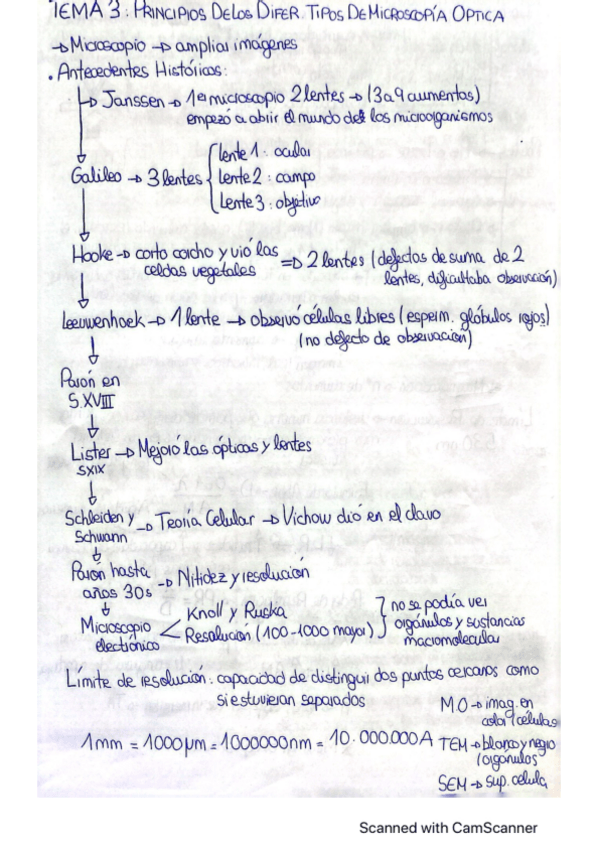 TEMA 3: PRINCIPIOS DE LOS DIFER. TIPOS DE MICROSCOPÍA OPTICA
→ Microscopio → ampliar imágenes
• Antecedentes Históricos:
↳ Janssen → 1er microscopio 2 lentes → (3 a 9 aumentos)
empezó a abrir el mundo de los microorganismos
Galileo → 3 lentes { lente 1: ocular
lente 2: campo
Lente 3: objetivo
Hooke → corto corcho y vió las celdas vegetales ⇒ 2 lentes (defectos de suma de 2
lentes, dificultaba observación)
Leeuwenhoek → 1 lente → observó células libres (esperm. glóbulos rojos)
(no defecto de observación)
Parón en
S.XVIII
Lister → Mejoró las ópticas y lentes
SXIX
Schleiden y
Schwann → Teoría Celular → Vichow dió en el clavo
Parón hasta
años 30s → Nitidez y resolución
Microscopio
electrónico < Knoll y Ruska
Resolución (100-1000 mayor) } no se podía ver
orgánulos y sustancias
macromolecular
Límite de resolución: capacidad de distinguir dos puntos cercanos como
si estuvieran separados
MO → imag. en
color / células
1mm = 1000µm = 1000000nm = 10.000.000A
TEM → blanco y negro
/orgánulos
SEM → sup. celula
Scanned with CamScanner